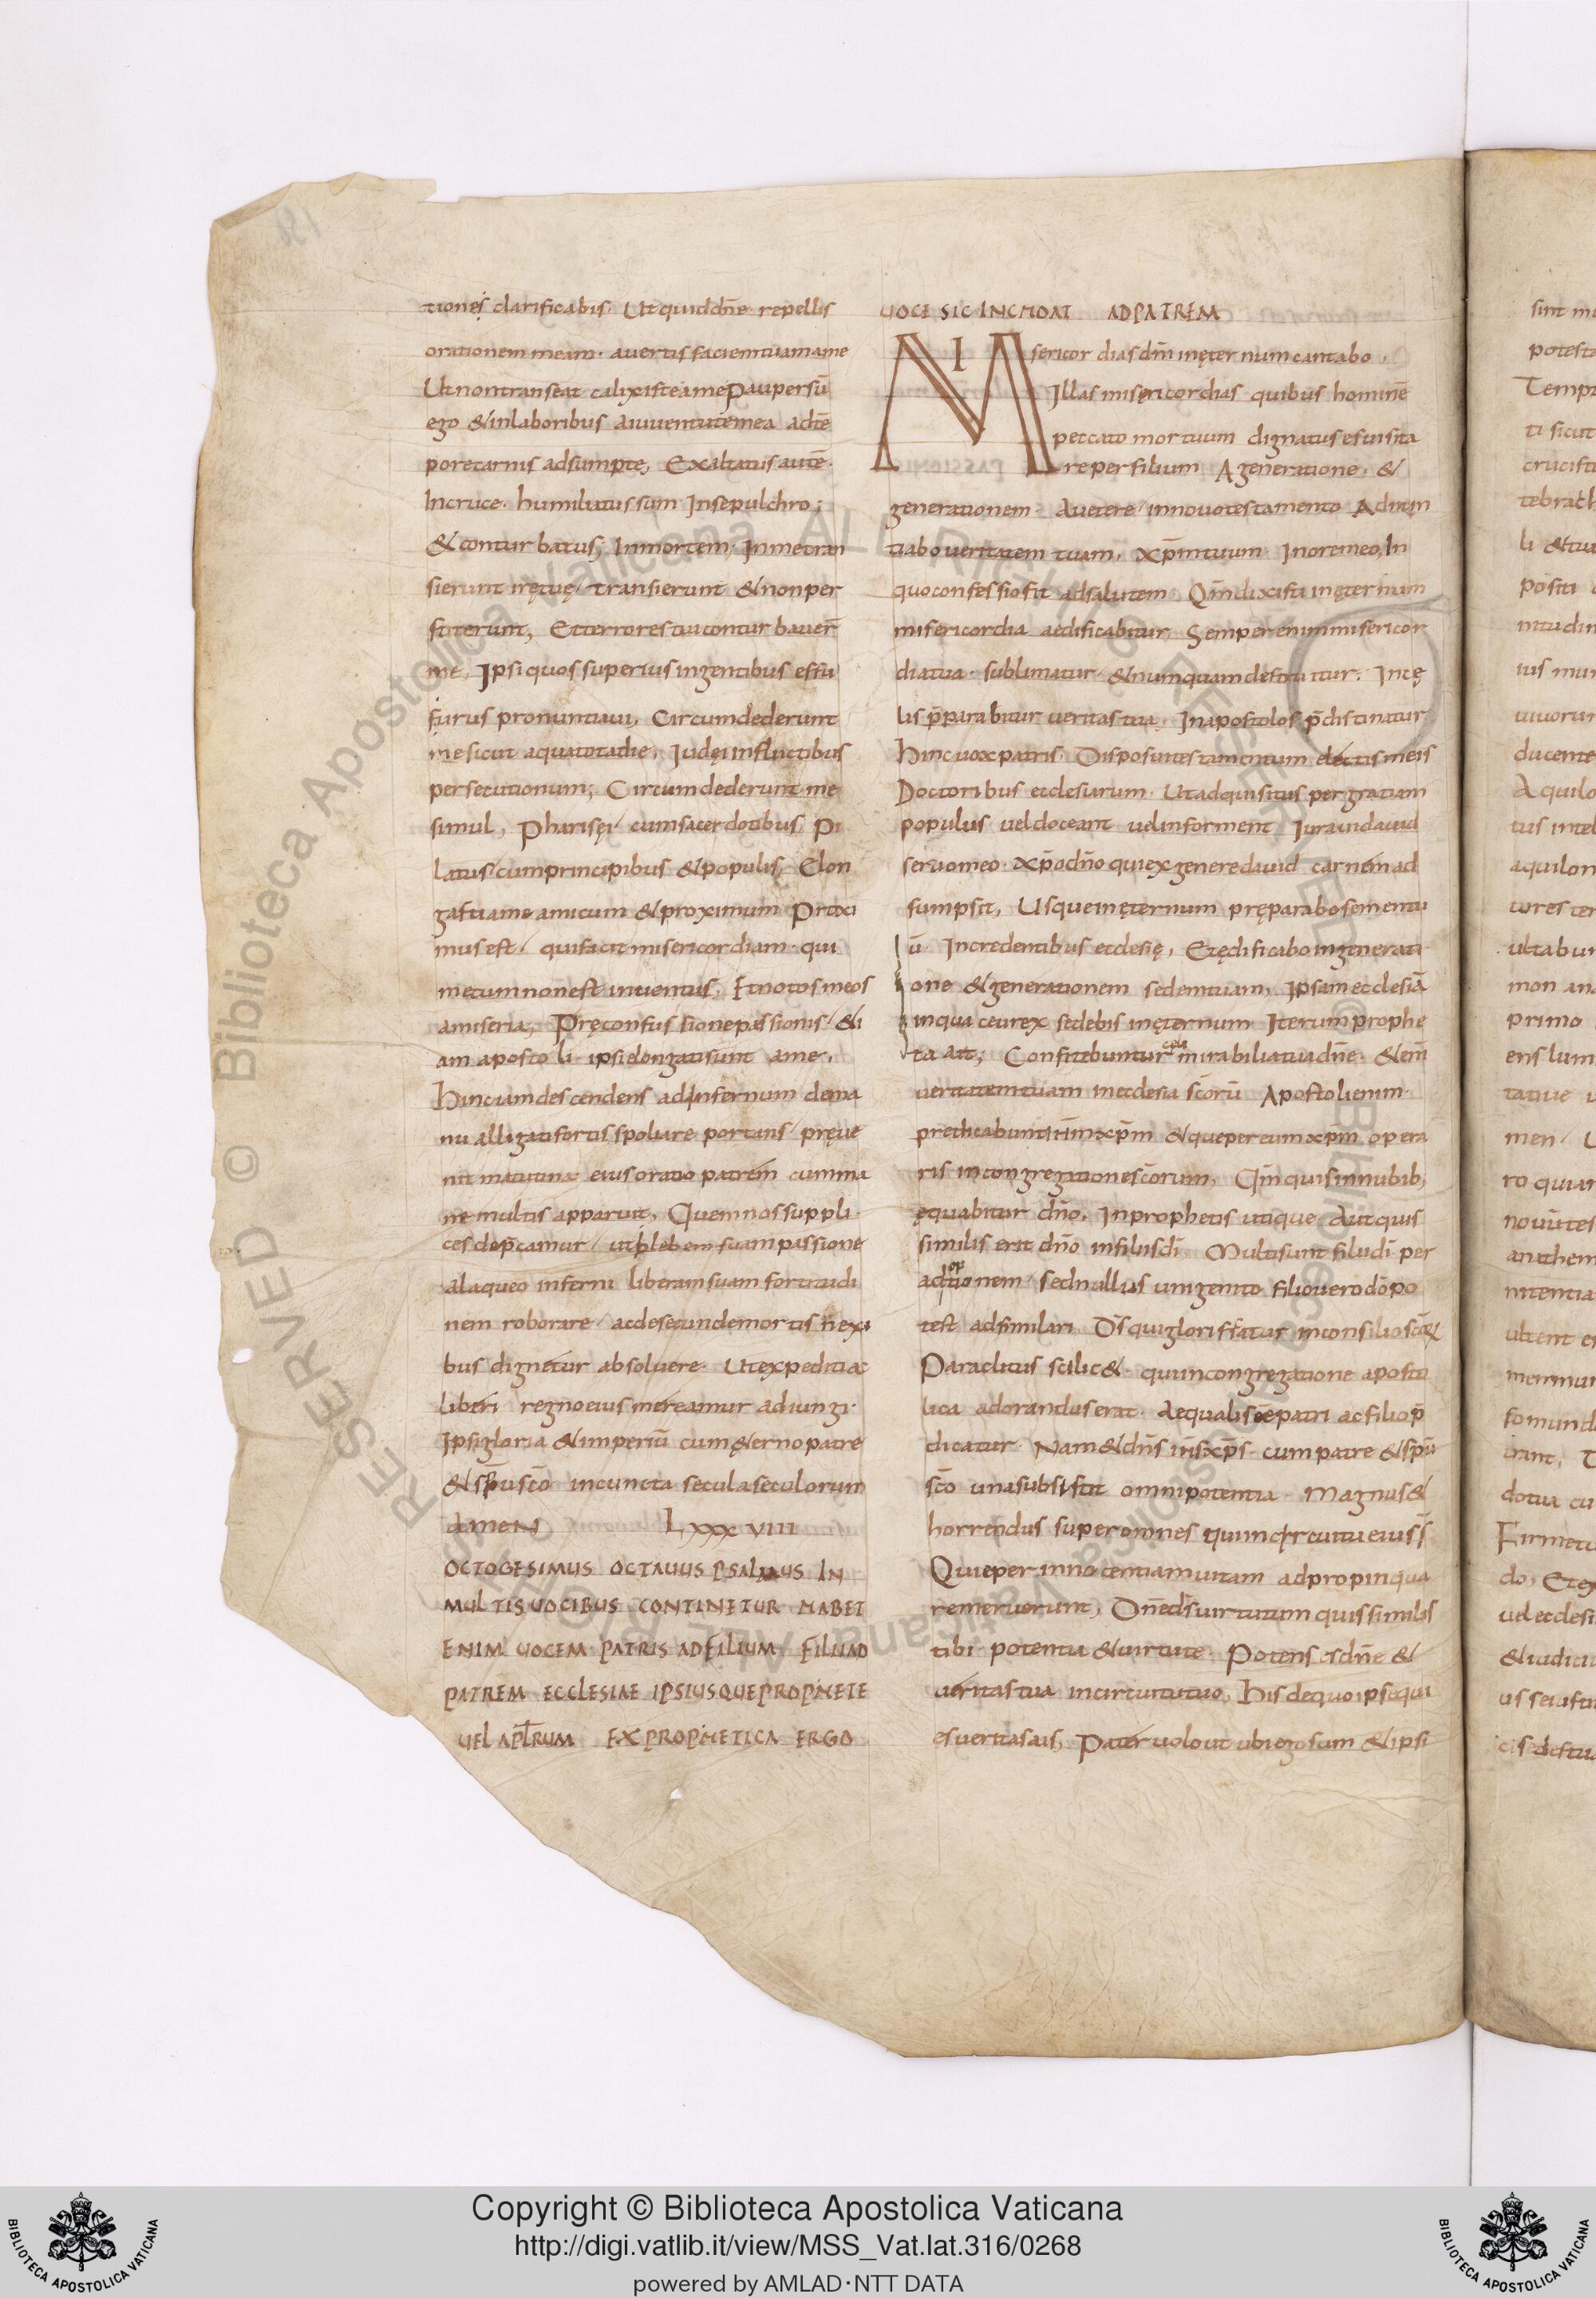 tionęs clarificabis. Ut quid dn̄e repellis
orationem meam. avertis faciem tuam a me
Ut non transeat calix iste a me Pauper sū
ego & in laboribus a iuventute mea a tē
pore carnis adsumptę, Exaltatus autē.
In cruce. humiliatus sum In sepulchro;
& conturbatus; In mortem, In me tran
sierunt iręt uę/ transierunt & non per
stiterunt, Et terrores tui conturbaver̄
me, Ipsi quos superius in gentibus effu
surus pronuntiavi, Circumdederunt
me sicut aqua tota die, Iudęi in fluctibus
persecutionum; Circumdederunt me
simul, Pharisęi cum sacerdotibus, Pi
latus/ cum principibus & populis, Elon
gasti a me amicum & proximum Proxi
mus est/ qui facit misericordiam. qui
mecum non est inventus, Et notos meos
a miseria, Pręconfussione passionis/ &i
am apostoli. ipsi elongati sunt a me.
Hinc iam descendens ad infernum de ma
nu alligati fortis spoliare portans/ pręve
nit matutina eius oratio patrem cum ma
ne multis apparuit, Quem nos suppli
ces dep̄camur/ ut plebem suam passione
a laqueo inferni liberam suam fortitudi
nem roborare/ ac de secunde mortis nexi
bus dignetur absolvere. Ut expeditiac
liberi regno eius mereamur adiungi.
Ipsi gloria & imperiū cum ę&erno patre
& sp̄u sc̄o in cuncta secula seculorum
AMEN LXXXVIII
OCTOGESIMUS OCTAVUS PSALMUS IN
MULTIS VOCIBUS CONTINETUR HABET
ENIM VOCEM PATRIS AD FILIUM FILII AD
PATREM ECCLESIAE IPSIUSQUE PROPHETE
VEL APL̄RUM EX PROPHETICA ERGO
VOCE SIC INCHOAT AD PATREM
MIsericordias dn̄i in ęternum cantabo,
Illas misericordias quibus hominē
peccato mortuum dignatus es visita
re per filium A generatione. &
generationem. A vetere/ in novo testamento Adnun
tiabo veritatem tuam, xp̄m tuum In ore meo, In
quo confessio fit ad salutem Qm̄ dixisti in ęternum
misericordia aedificabitur, Semper enim misericor
dia tua. sublimatur. & numquam destruitur. In cę
lis p̄parabitur veritas tua, In apostolos p̄distinatur
Hinc vox patris. Disposui testamentum electis meis
Doctoribus ecclesiarum. Ut adquisitus per gratiam
populus vel doceant vel informent Iuravi david
servo meo. xp̄o dn̄o qui ex genere david carnem ad
sumpsit, Usque in ęternum pręparabo semen tu
ū. In credentibus ecclesię, Et ędificabo in generati
one & generationem sedem tuam, Ipsam ecclesiā
in qua ceu rex sedebis in ęternum Iterum prophe
ta ait; Confitebuntur cęli mirabilia tua dn̄e. & em̄
veritatem tuam in ecclesia sc̄orū Apostoli enim.
predicabunt ih̄m xp̄m & que per eum xp̄m opera
ris in congregatione sc̄orum, Qm̄ quis in nubib;
ęquabitur dn̄o, In prophetis utique Aut quis
similis erit dn̄o in filiis dī Multi sunt filii dī per
adoptionem/ sed nullus unigenito filio vero dō po
test adsimilari Ds̄ qui glorificatur in consilio sc̄oꝝ
Paraclitus scilic&. qui in congregatione aposto
lica adorandus erat. Aequalis ēē patri ac filio p̄
dicatur. Nam & dn̄s ih̄s xp̄s. cum patre & sp̄u
sc̄o una subsistit omnipotentia. Magnus &
horrendus super omnes qui in circuitu eius s̄
Qui eper innocentiam vitam adpropinqua
re meruerunt, Dn̄e ds̄ virtutum quis similis
tibi. potentia & virtute. Potens es dn̄e &
veritas tua in circuitu tuo, His de quo ipse qui
es veritas ais, Pater volo ut ubi ego sum & ipsi
Copyright © Biblioteca Apostolica Vaticana
http://digi.vatlib.it/view/MSS_Vat.lat.316/0268
powered by AMLAD·NTT DATA